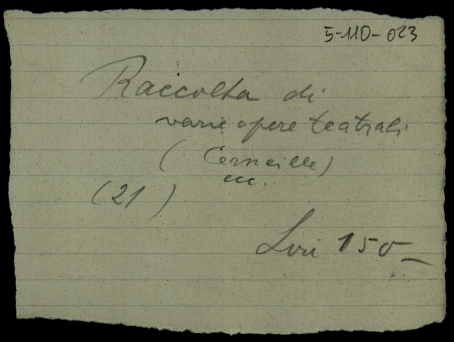 5-110-023
Raccolta di
varie opere teatrali
(Corneille)
ecc.
(21)
Lire 150-